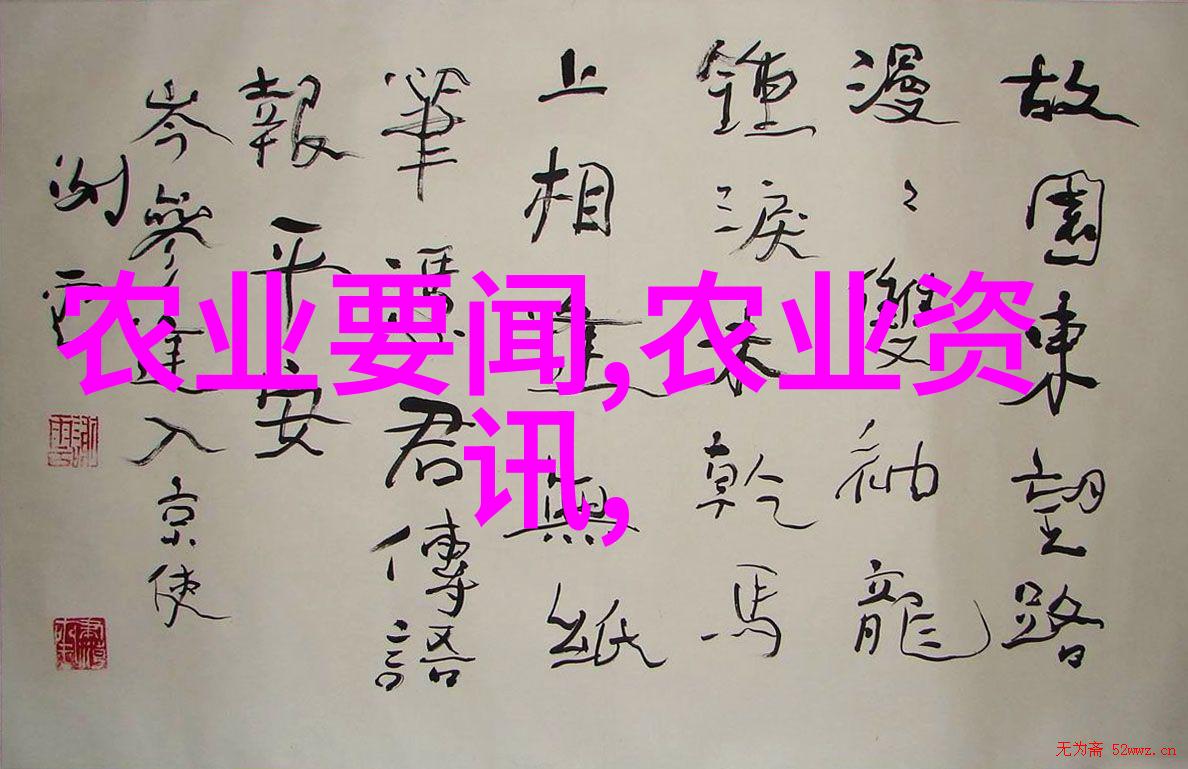 故園東望路
漫〻雙袖龍
鍾淚未乾馬
上相逢無紙
筆憑君傳語
報平安
岑參逢入京使
谢雲
农业要闻,农业资
讯,
无为斋 52wwz.cn